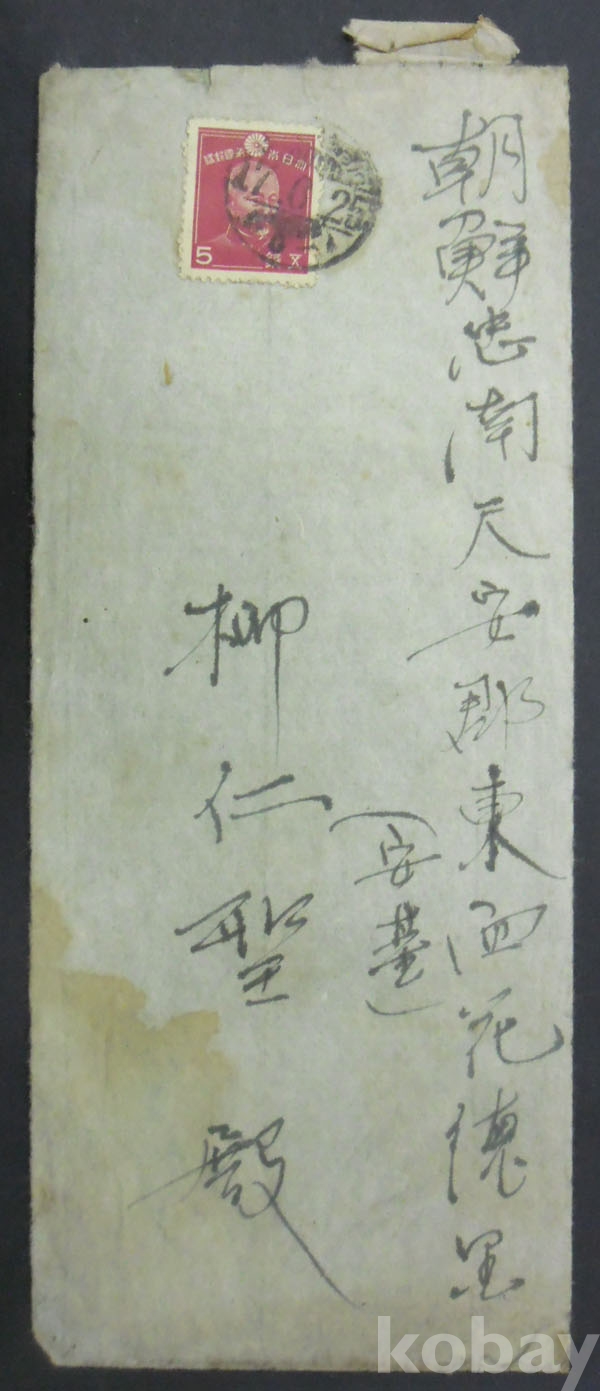 朝鮮忠南天安郡東面花德里
(安基)
柳仁聖 殿
大日本帝國郵便
17 25
5 五銭
kobay